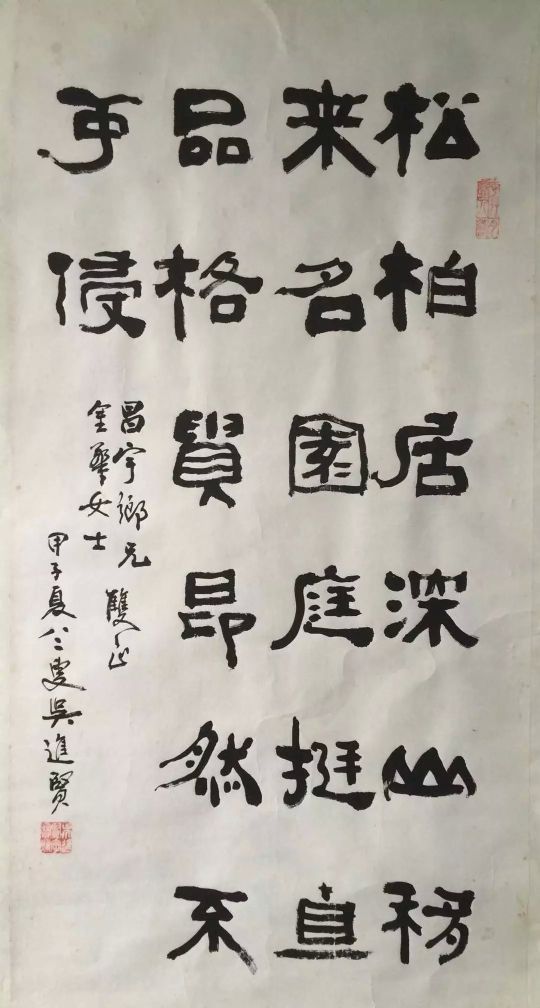 松柏居深山移
来名園庭挺直
品格貴昂然不
可侵
昌宇鄉兄 雙正
金 女士
甲子夏八二叟吳進賢